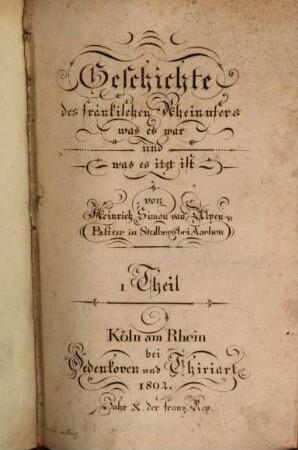 Geschichte
des fränkischen Rheinufers
was es war
und
was es itzt ist
von
Heinrich Simon van Alpen
Pastor in Stolberg bei Aachen
I Theil
Köln am Rhein
bei
Oedenkoven und Thiriart
1802.
Jahr X. der franz. Rep.